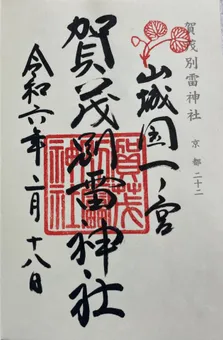 賀茂別雷神社
京都 二十二
山城国一ノ宮
賀茂別雷神社
令和六年二月十八日
賀茂別雷神社